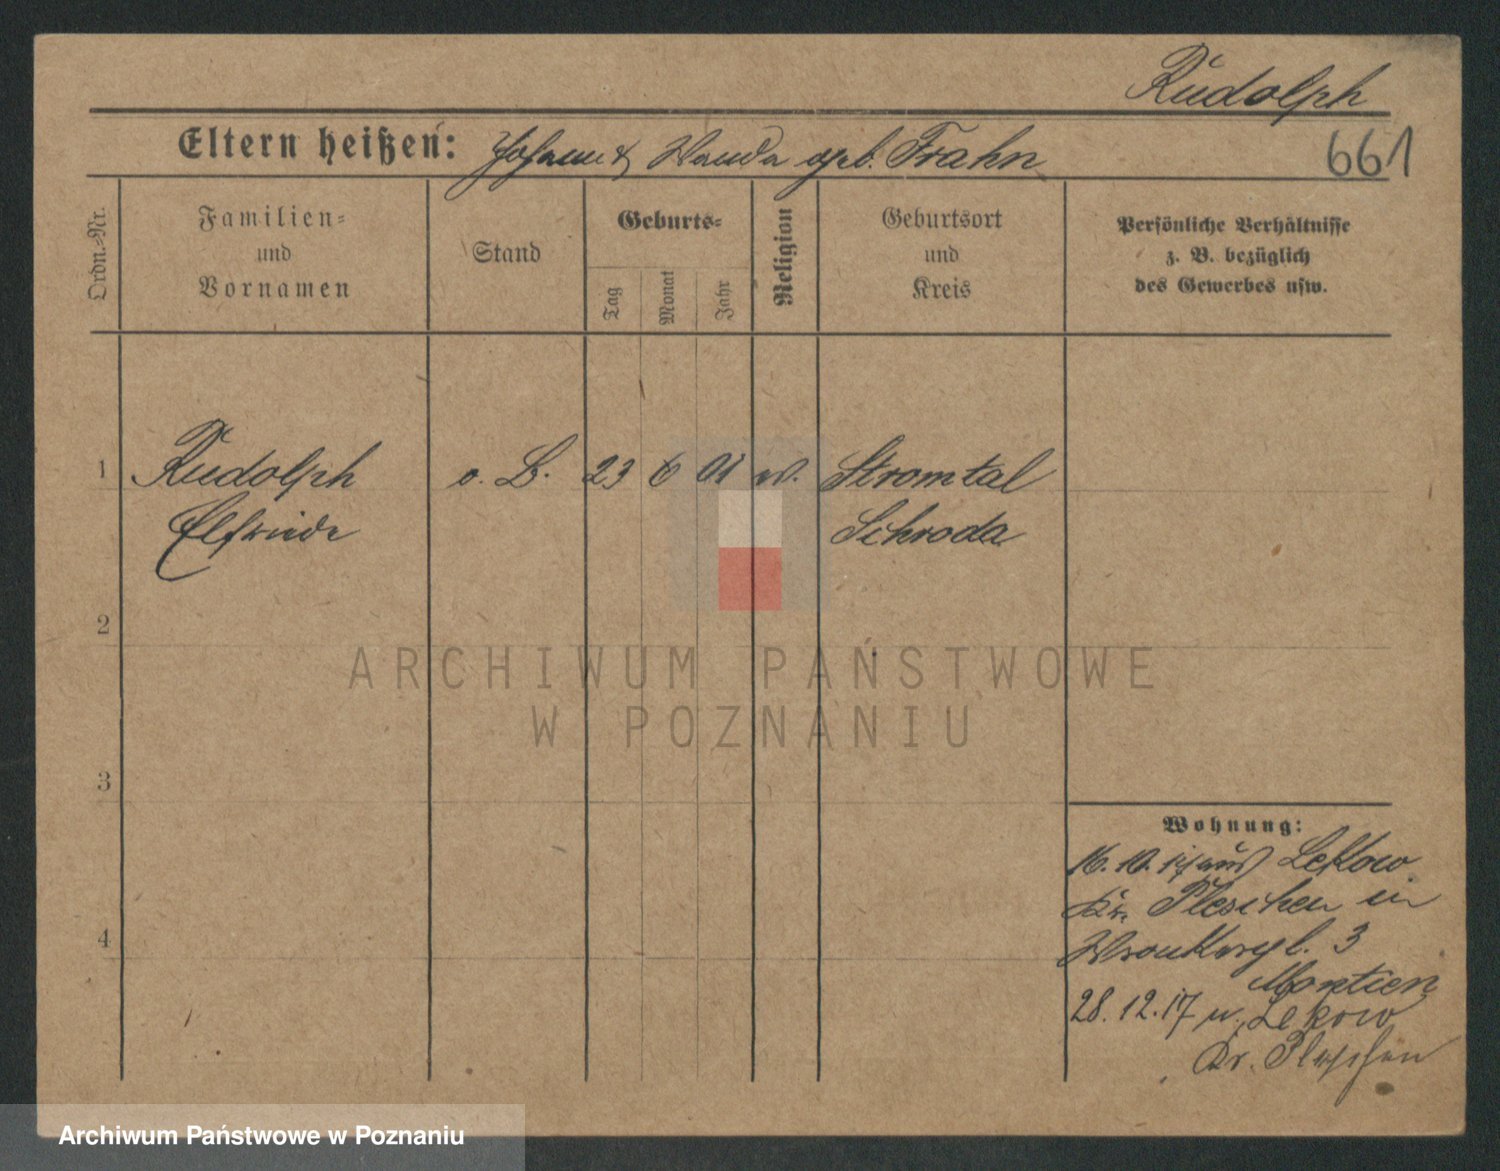 Rudolph
Eltern heißen: Johann & Wanda geb. Frahn
661
Ordn.=Nr.
Familien=
und
Vornamen
Stand
Geburts=
Tag
Monat
Jahr
Religion
Geburtsort
und
Kreis
Persönliche Verhältnisse
z. B. bezüglich
des Gewerbes usw.
1 Rudolph o. B. 23 6 01 Stromtal
Elfriede Schroda
2
ARCHIWUM PAŃSTWOWE
W POZNANIU
3
4
Wohnung:
16. 10. 17 aus Lekow
Kr. Pleschen in
3
28. 12. 17 n. Lekow
Kr. Pleschen
Archiwum Państwowe w Poznaniu